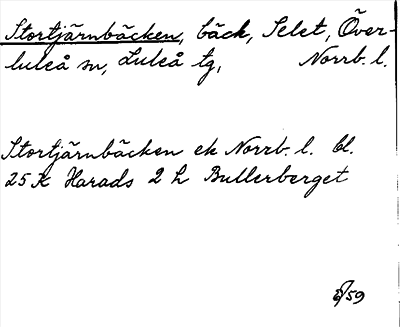 Stortjärnbäcken, bäck, Selet, Över-
luleå sn, Luleå tg, Norrb. l.
Stortjärnbäcken ek Norrb. l. bl.
25 K Harads 2 h Bullerberget
/59